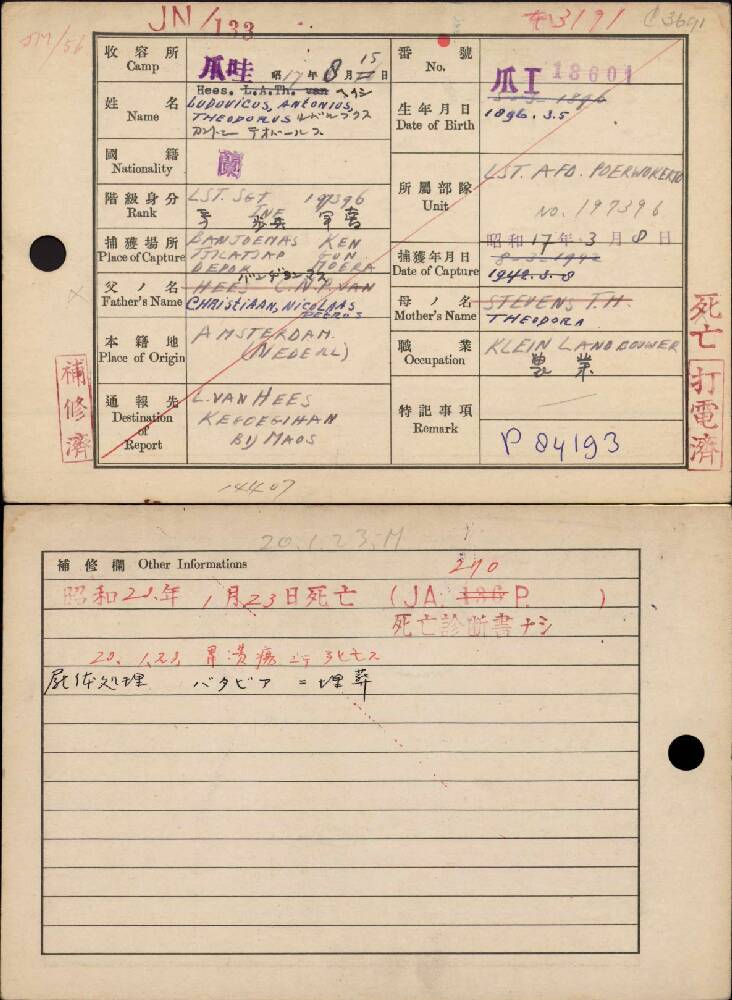 JN/133
3191
C3691
收容所 Camp
爪哇
昭17年8月15日
番號 No.
爪I 13601
姓名 Name
Hees. L.A.Th. van
LUDOVICUS, ANTONIUS,
THEODORUS
生年月日 Date of Birth
1896.3.5
國籍 Nationality
蘭
所屬部隊 Unit
LST. AFD. POERWOKERTO
NO. 197396
階級身分 Rank
LST. SGT 197396
INF
捕獲場所 Place of Capture
BANJOEMAS KEN
TJILATJAP GUN
DEPOK
捕獲年月日 Date of Capture
昭和17年3月8日
8-3-1942
1942.3.8
父ノ名 Father's Name
HEES C.N.P. VAN
CHRISTIAAN, NICOLAAS
PETRUS
母ノ名 Mother's Name
STEVENS T.H.
THEODORA
本籍地 Place of Origin
AMSTERDAM.
(NEDERL)
職業 Occupation
KLEIN LANDBOUWER
農業
通報先 Destination of Report
L. VAN HEES
BIJ MAOS
特記事項 Remark
P 84193
補修濟
死亡
打電濟
14407
20.1.23.M
補修欄 Other Informations
270
昭和20年1月23日死亡 (JA. 186 P. )
死亡診断書ナシ
20.1.23 胃潰瘍ニテ死亡ス
屍体処理 バタビア ニ埋葬